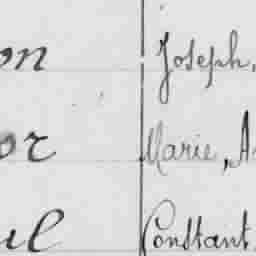 on Joseph,
or Marie, A
ul Constant